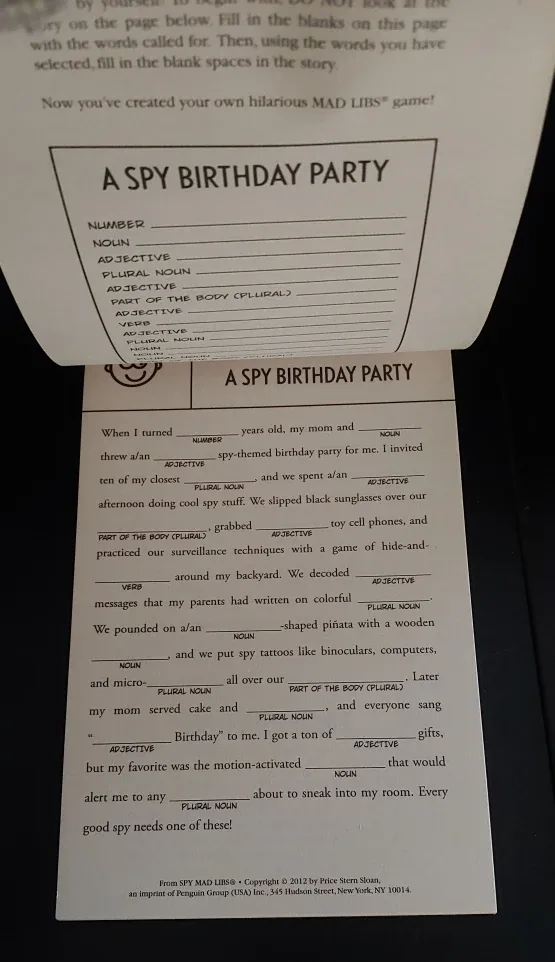 by yourself. To begin with, DO NOT look at the
story on the page below. Fill in the blanks on this page
with the words called for. Then, using the words you have
selected, fill in the blank spaces in the story.
Now you've created your own hilarious MAD LIBS® game!
A SPY BIRTHDAY PARTY
NUMBER
NOUN
ADJECTIVE
PLURAL NOUN
ADJECTIVE
PART OF THE BODY (PLURAL)
ADJECTIVE
VERB
ADJECTIVE
PLURAL NOUN
NOUN
NOUN
PLURAL NOUN
A SPY BIRTHDAY PARTY
When I turned __________ years old, my mom and __________
NUMBER NOUN
threw a/an __________ spy-themed birthday party for me. I invited
ADJECTIVE
ten of my closest __________, and we spent a/an __________
PLURAL NOUN ADJECTIVE
afternoon doing cool spy stuff. We slipped black sunglasses over our
__________, grabbed __________ toy cell phones, and
PART OF THE BODY (PLURAL) ADJECTIVE
practiced our surveillance techniques with a game of hide-and-
__________ around my backyard. We decoded __________
VERB ADJECTIVE
messages that my parents had written on colorful __________.
PLURAL NOUN
We pounded on a/an __________-shaped piñata with a wooden
NOUN
__________, and we put spy tattoos like binoculars, computers,
NOUN
and micro-__________ all over our __________. Later
PLURAL NOUN PART OF THE BODY (PLURAL)
my mom served cake and __________, and everyone sang
PLURAL NOUN
“__________ Birthday” to me. I got a ton of __________ gifts,
ADJECTIVE ADJECTIVE
but my favorite was the motion-activated __________ that would
NOUN
alert me to any __________ about to sneak into my room. Every
PLURAL NOUN
good spy needs one of these!
From SPY MAD LIBS® • Copyright © 2012 by Price Stern Sloan,
an imprint of Penguin Group (USA) Inc., 345 Hudson Street, New York, NY 10014.